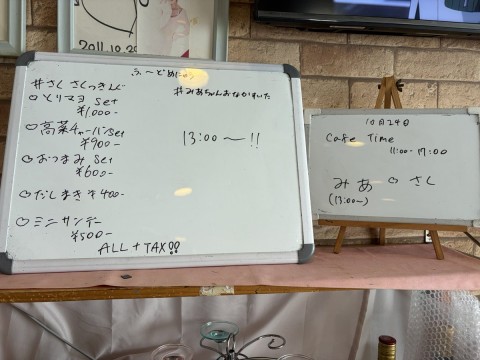 2011.10.29
ふ〜どめにゅう
#さく さくっきんぐ
#みあちゃんおなかすいた
♡とりマヨ Set
¥1,000-
♡高菜チャーハンSet
¥900-
♡おつまみ Set
¥600-
♡だしまき ¥400-
♡ミニサンデー
¥500-
ALL + TAX!!
13:00〜!!
10月29日
Cafe Time
11:00-17:00
みあ ♡ さく
(13:00〜)